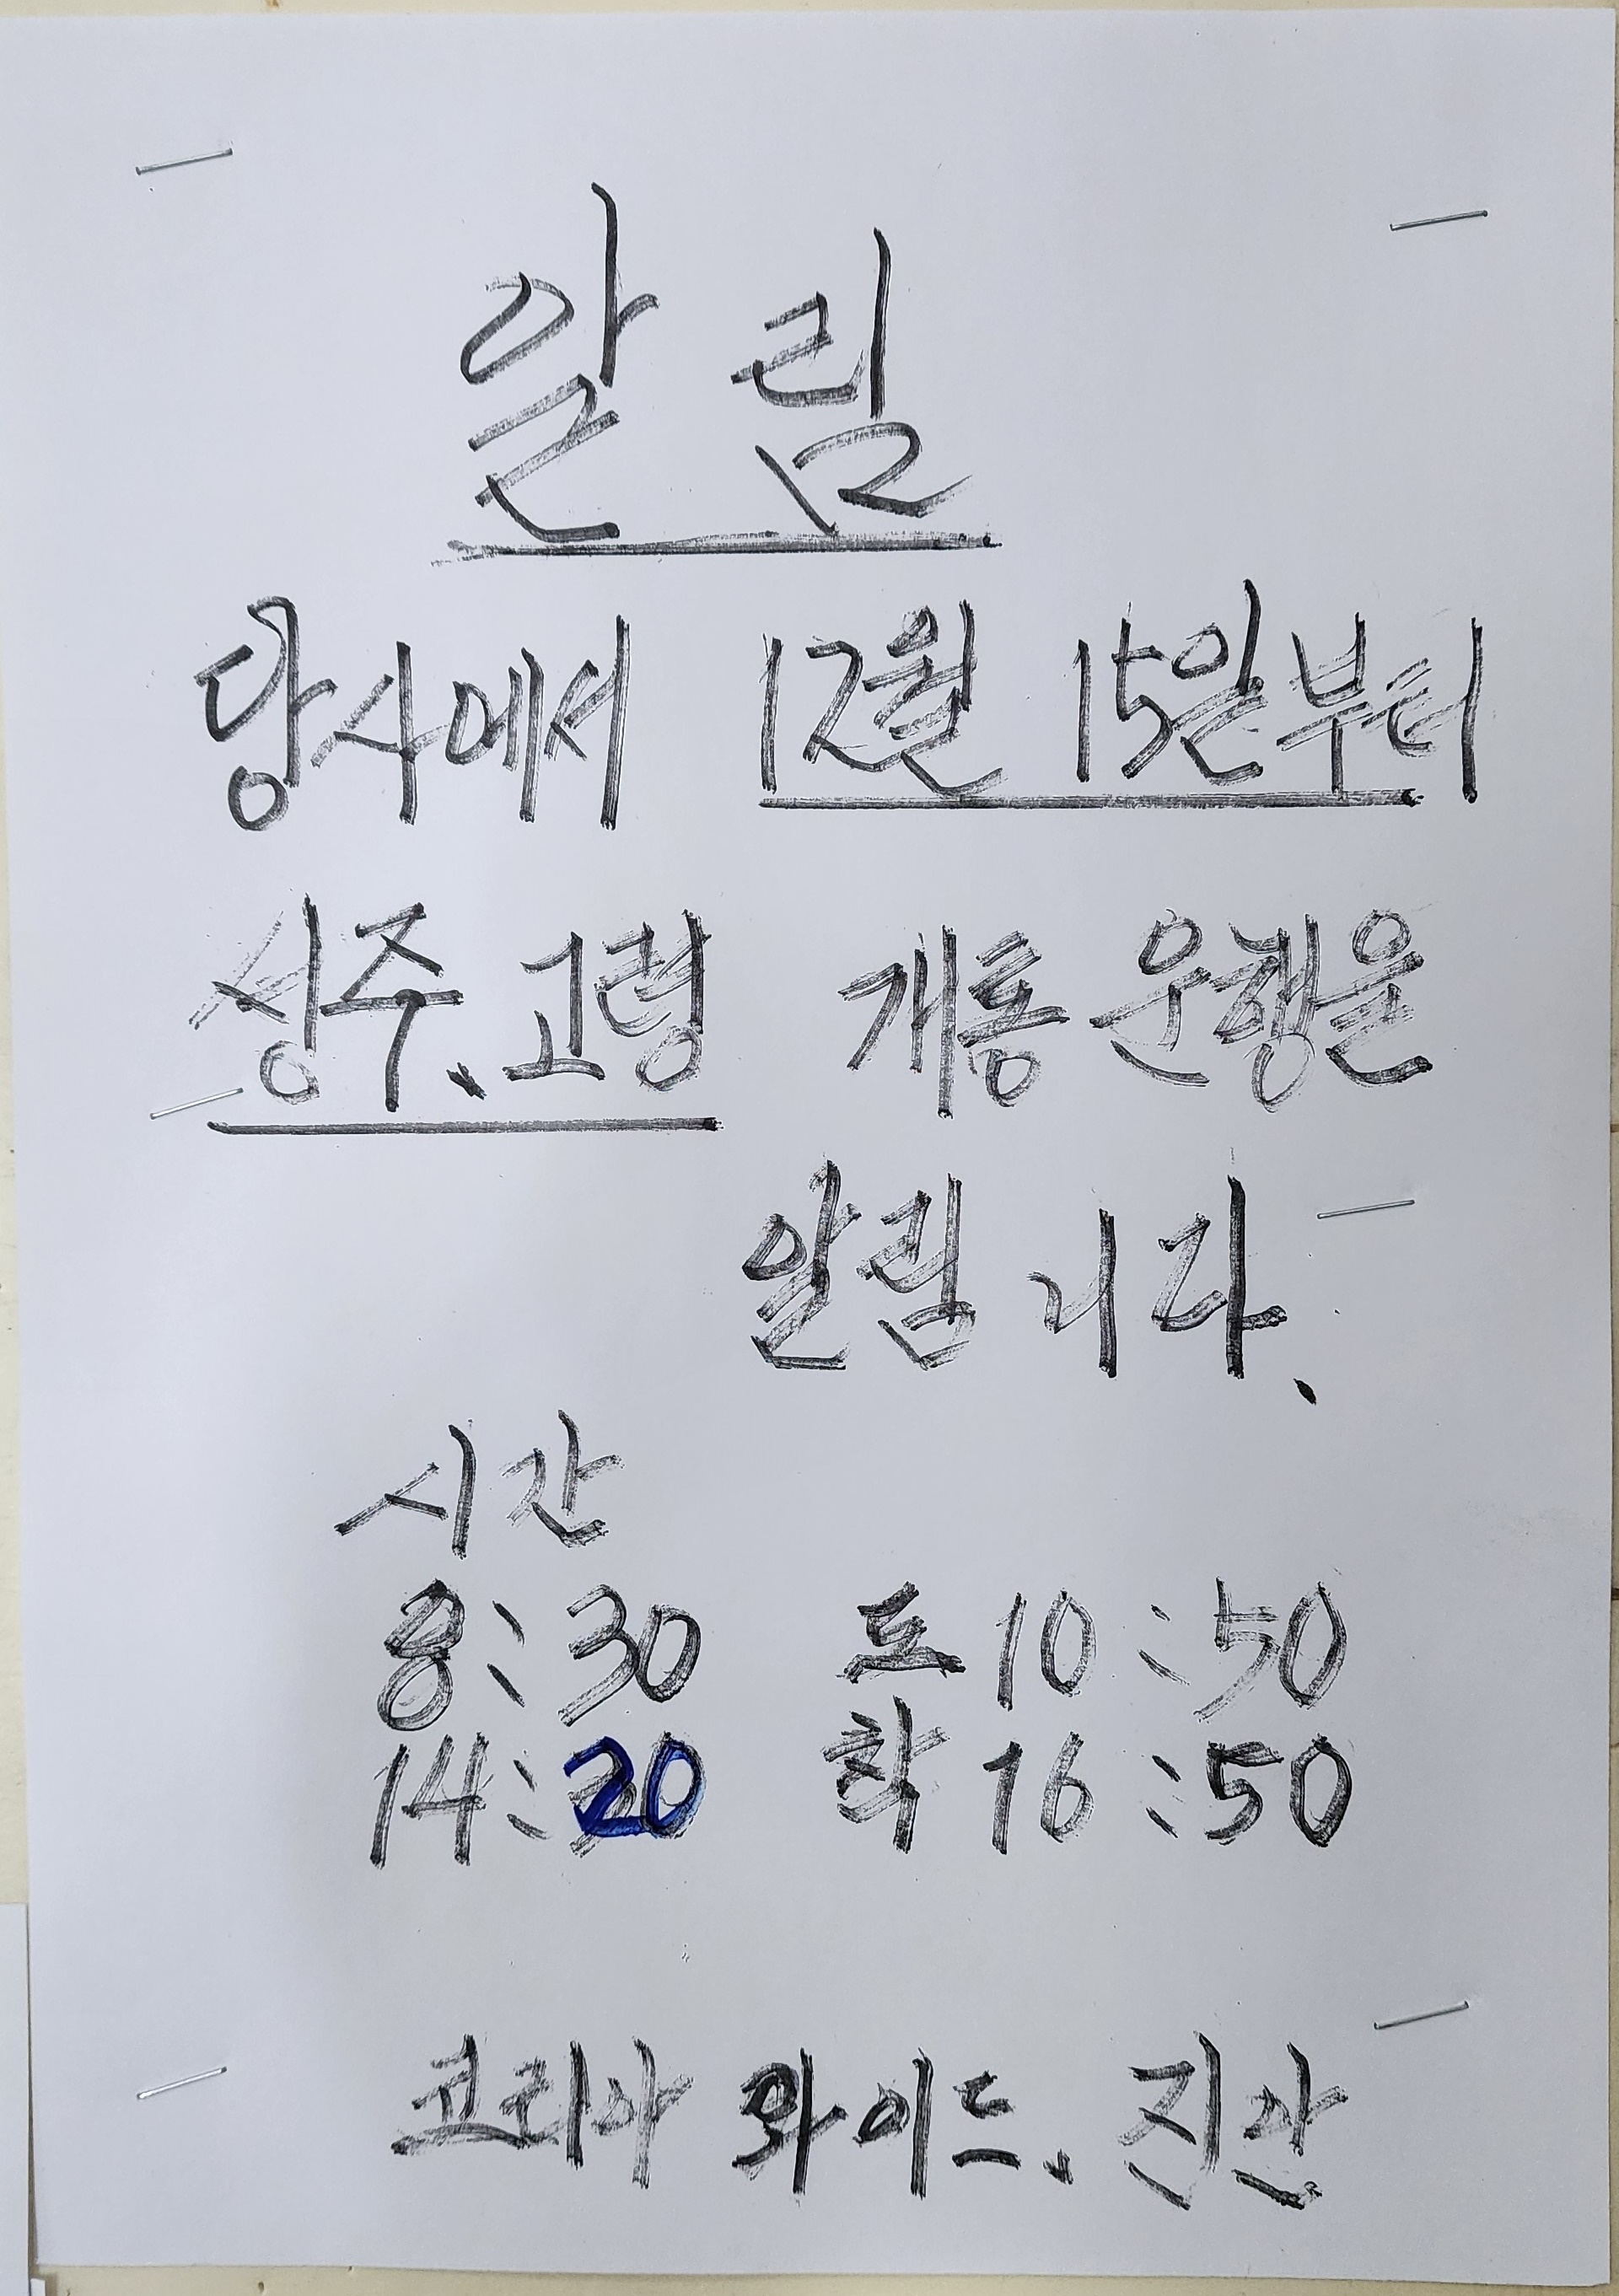 알 림
당사에서 12월 15일부터
성주、고령 개통 운행을
알림 니다.
시간
8:30 도 10:50
14:20 착 16:50
코리아 와이드、진안